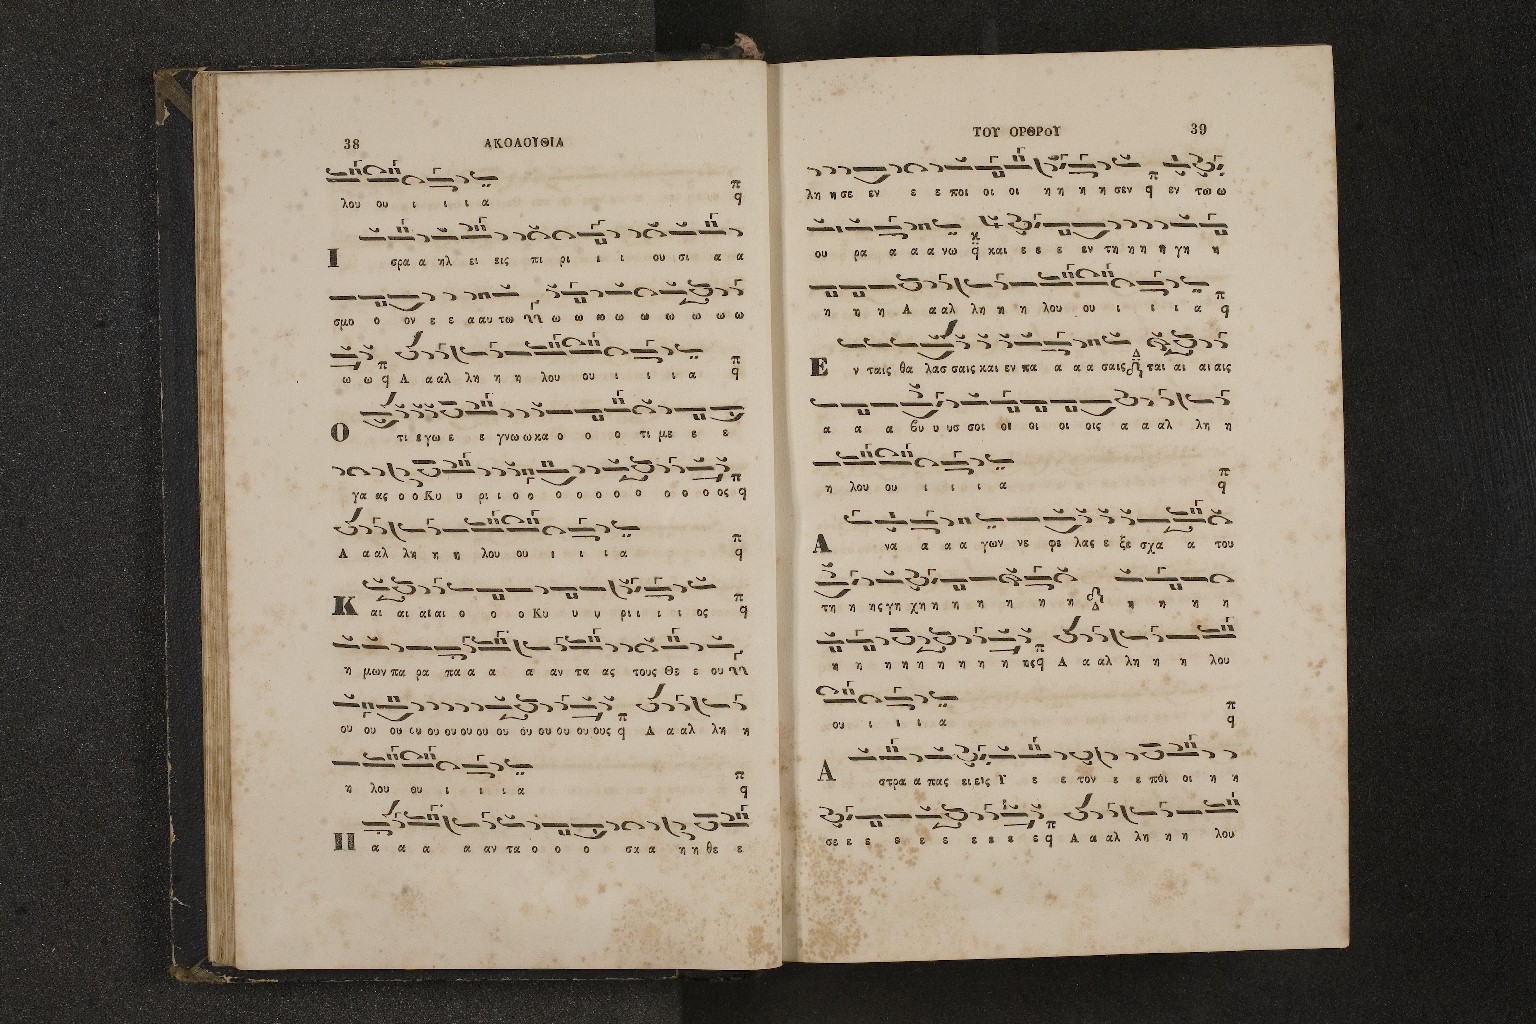 38 ΑΚΟΛΟΥΘΙΑ
λου ου ι ι ι α
Ι σρα α ηλ ει εις πι ρι ι ι ου σι α α
σμο ο ον ε ε α αυ τω ω ω ω ω ω ω ω ω
ω ω Α α αλ λη η η λου ου ι ι ι α
Ο τι ε γω ε ε γνω ω κα ο ο ο τι με ε ε
γα ας ο ο Κυ υ ρι ι ο ο ο ο ο ο ο ο ο ο ος
Α α αλ λη η η λου ου ι ι ι α
Κ αι αι αι αι ο ο ο Κυ υ υ ρι ι ι ι ος
η μων πα ρα πα α α α αν τα ας τους Θε ε ου
ου ου ου ου ου ου ου ου ου ου ου ου ου ους Α α αλ λη η
η λου ου ι ι ι α
Π α α α α αν τα ο ο ο σα α η η θε ε
ΤΟΥ ΟΡΘΡΟΥ 39
λη η σε εν ε ε ποι οι οι η η η η σεν εν τω ω
ου ρα α α α νω και ε ε ε εν τη η η η γη η
η η η Α α αλ λη η η λου ου ι ι ι α
Ε ν ταις θα λασ σαις και εν πα α α α σαις ται αι αι αις
α α α βυ υ υσ σοι οι οι οι οις α α αλ λη η
η λου ου ι ι ι α
Α νά α α α γων νε φε λας ε ξε σχα α του
τη η ης γη χη η η η η η η η η η η
η η η η η η η η ης Α α αλ λη η η λου
ου ι ι ι α
Α στρα α πας ει εις Υ ε ε τον ε ε ποι οι η η
σε ε ε ε ε ε ε ε ε ε ε Α α αλ λη η η λου